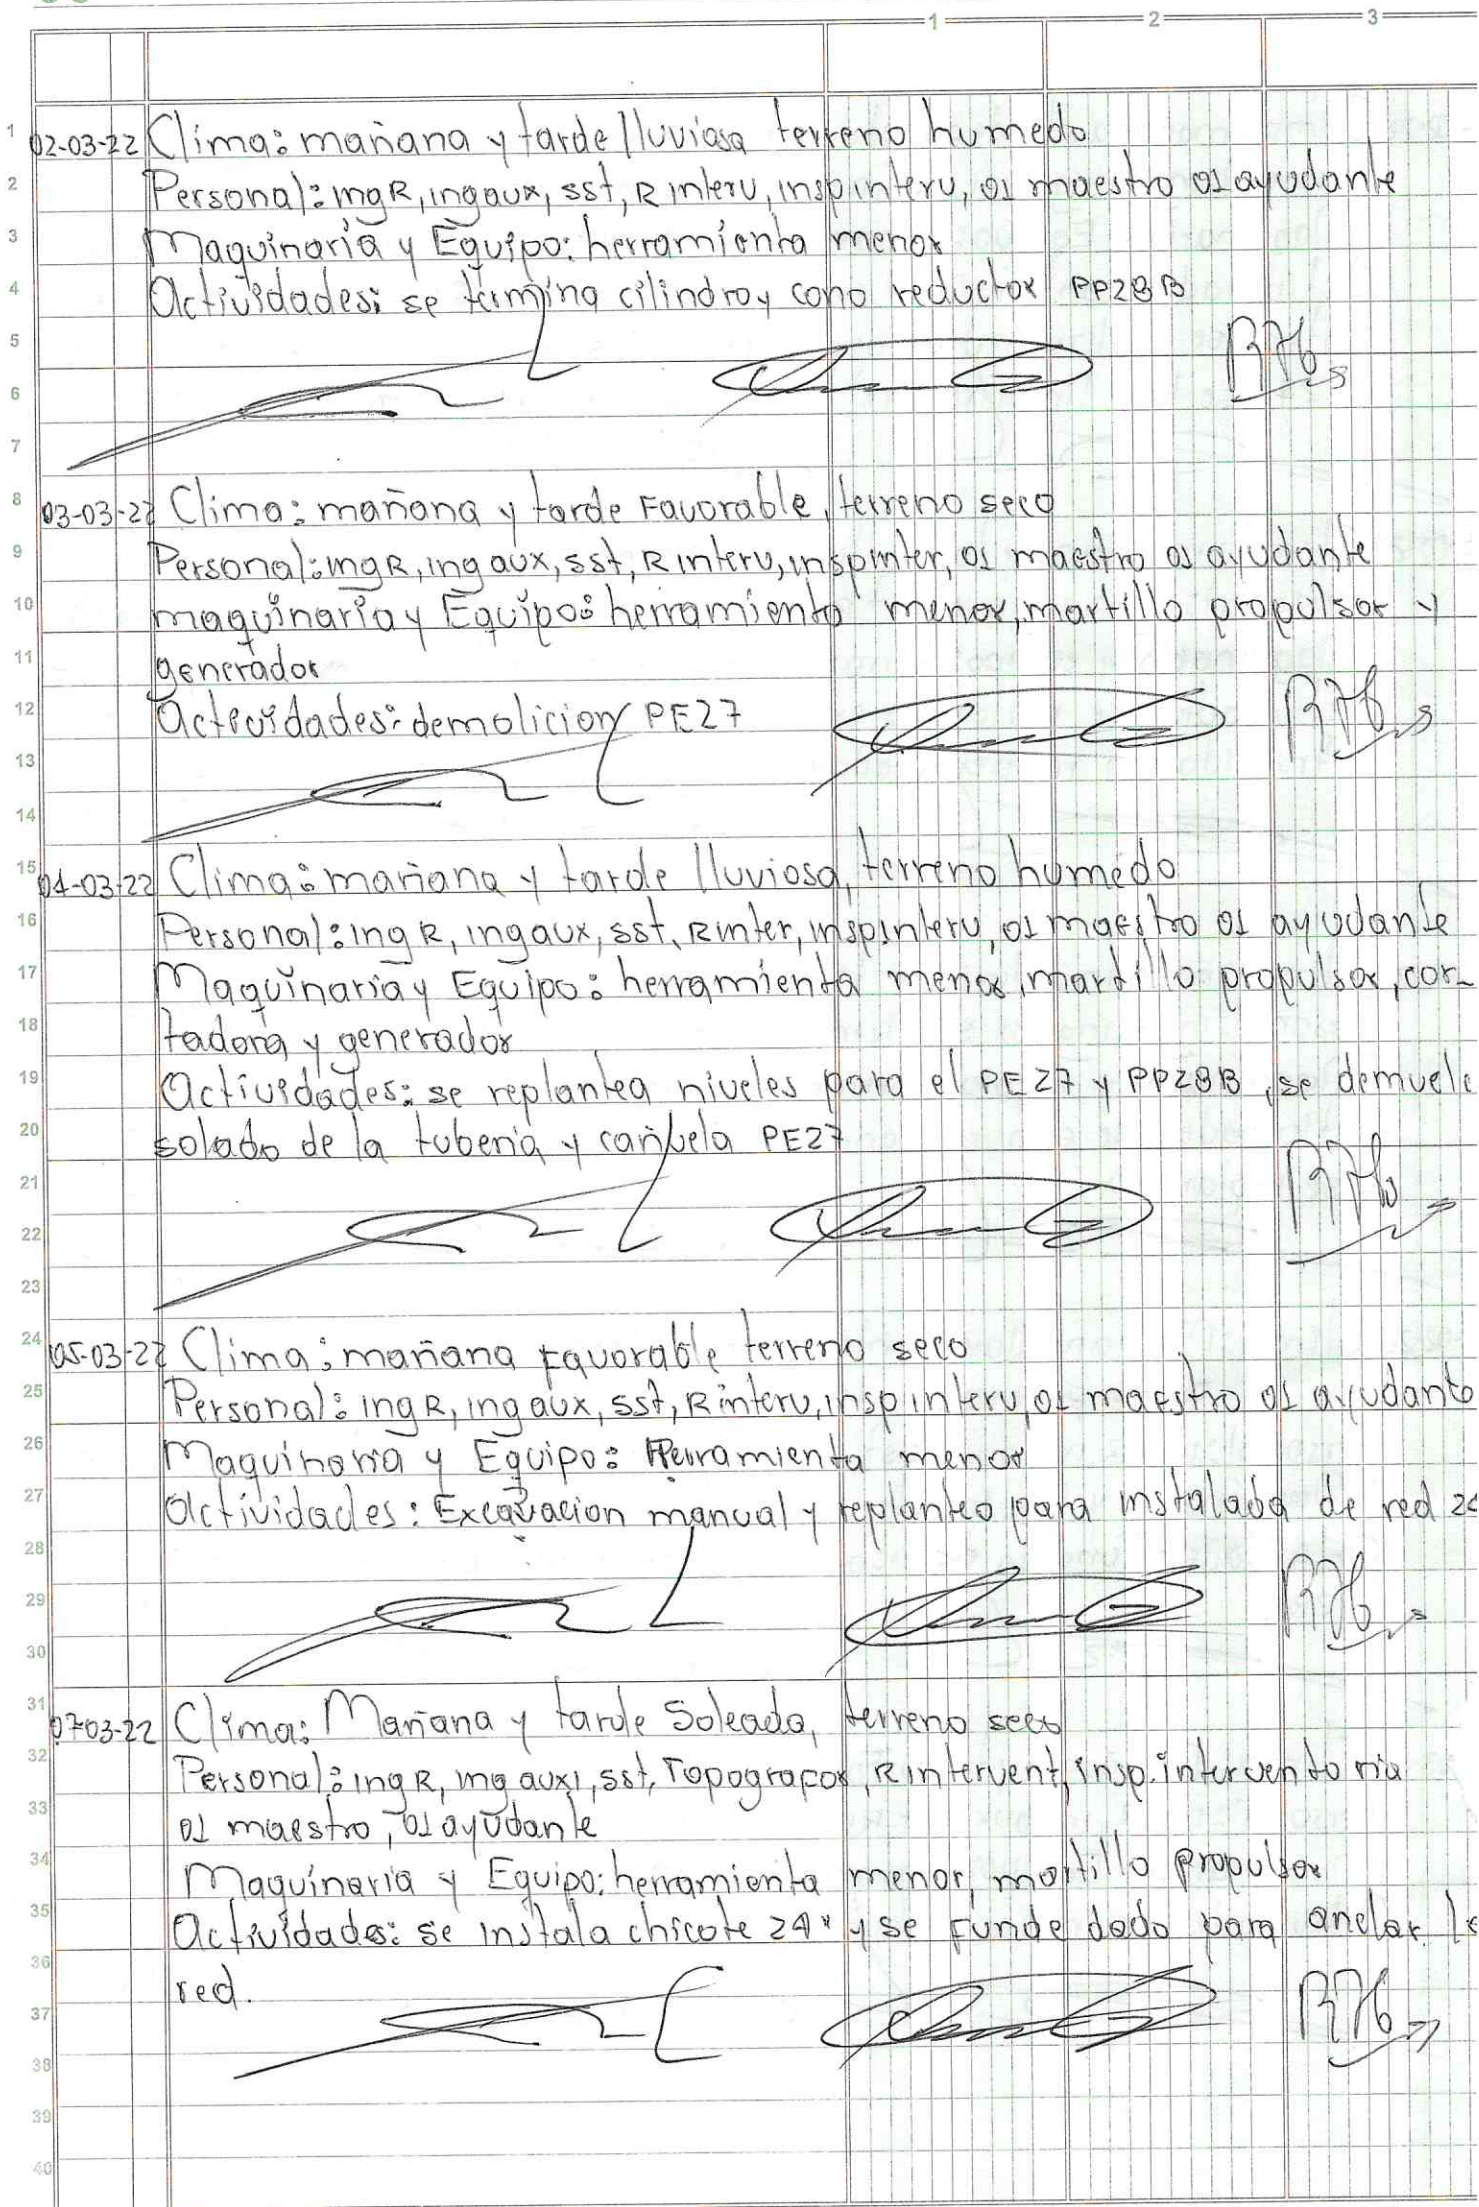 1 2 3
1 02-03-22 Clima: mañana y tarde lluviosa terreno humedo
2 Personal: ing R, ing aux, sst, R interv, insp interv, 01 maestro 01 ayudante
3 Maquinaria y Equipo: herramienta menor
4 Actividades: se termina cilindro y cono reductor PP28B
5
6
7
8 03-03-22 Clima: mañana y tarde Favorable, terreno seco
9 Personal: ing R, ing aux, sst, R interv, insp inter, 01 maestro 01 ayudante
10 maquinaria y Equipo: herramienta menor, martillo propulsor y
11 generador
12 Actividades: demolicion PE27
13
14
15 04-03-22 Clima: mañana y tarde lluviosa, terreno humedo
16 Personal: ing R, ing aux, sst, R inter, insp interv, 01 maestro 01 ayudante
17 Maquinaria y Equipo: herramienta menor, martillo propulsor, cor-
18 tadora y generador
19 Actividades: se replantea niveles para el PE27 y PP28B, se demuele
20 solado de la tuberia y cañuela PE27
21
22
23
24 05-03-22 Clima: mañana Favorable terreno seco
25 Personal: ing R, ing aux, sst, R interv, insp interv, 01 maestro 01 ayudante
26 Maquinaria y Equipo: Herramienta menor
27 Actividades: Excavacion manual y replanteo para instalada de red 24
28
29
30
31 07-03-22 Clima: Mañana y tarde Soleada, terreno seco
32 Personal: ing R, ing auxi, sst, Topografox, R intervent, insp. interventoria
33 01 maestro, 01 ayudante
34 Maquinaria y Equipo: herramienta menor, martillo propulsor
35 Actividades: se instala chicote 24" y se funde dado para anclar la
36 red.
37
38
39
40